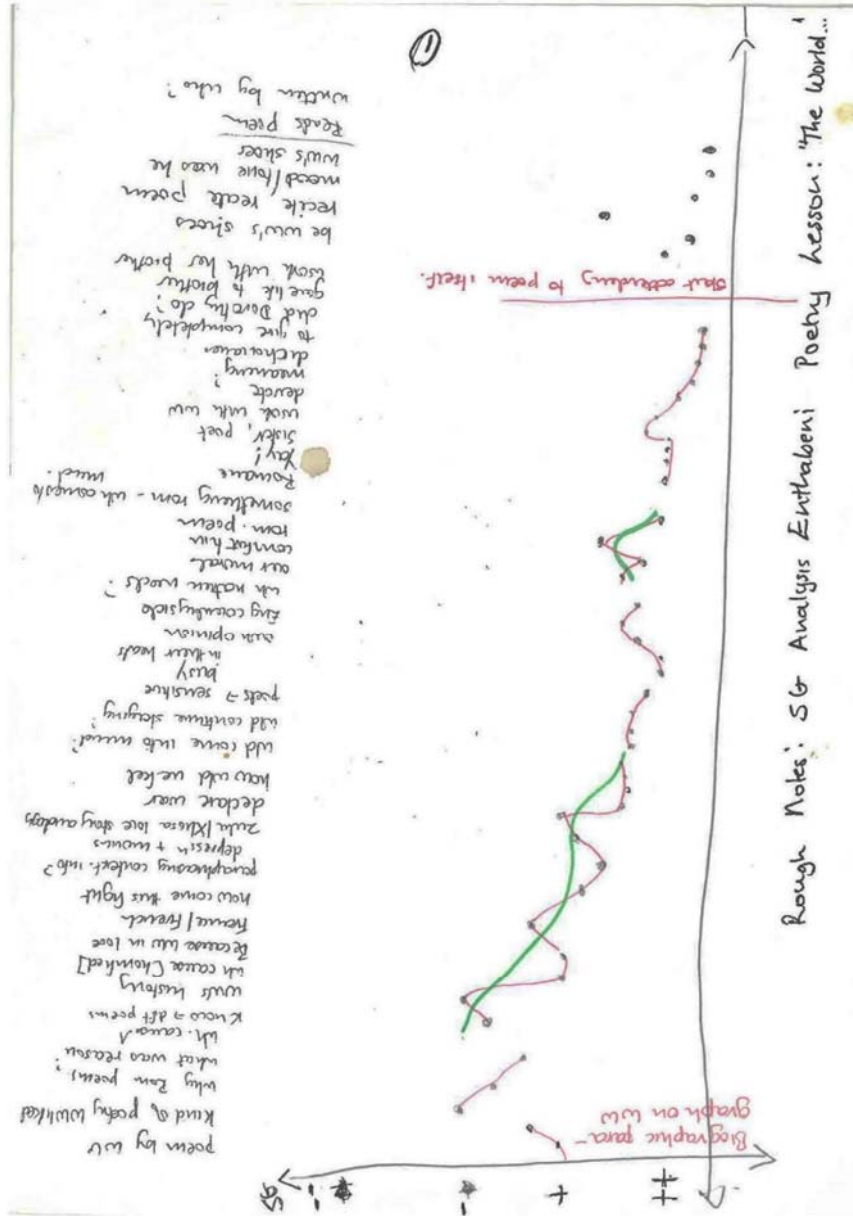 Rough Notes: SG Analysis Enthabeni Poetry Lesson: "The World..."
SG
--
-
+
++
Biographic para-
graph on WW
Start attending to poem itself.
poem by WW
Kind of poetry WW liked
why Rom poems?
what was reason
wh. cause
Know → dft poems
WW's history
wh cause
Because WW in love
France/French
how come this fight
paraphrasing context. info?
Zulu/Xhosa love story analogy
declare war
how wld we feel
wld come into mind?
wld continue staying?
poets → sensitive
busy
in their heads
own opinion
Eng countryside
our moral
comfort him
rom. poem
something rom - wh comes to
mind.
Romance
Yay!
sister, poet
work with WW
devote
meaning?
dictionaries
to give completely
did Dorothy do?
gave life to brother
work with her brother
be WW's shoes
recite poem
mood/tone was he
WW's shoes
Reads Poem
written by who?
1